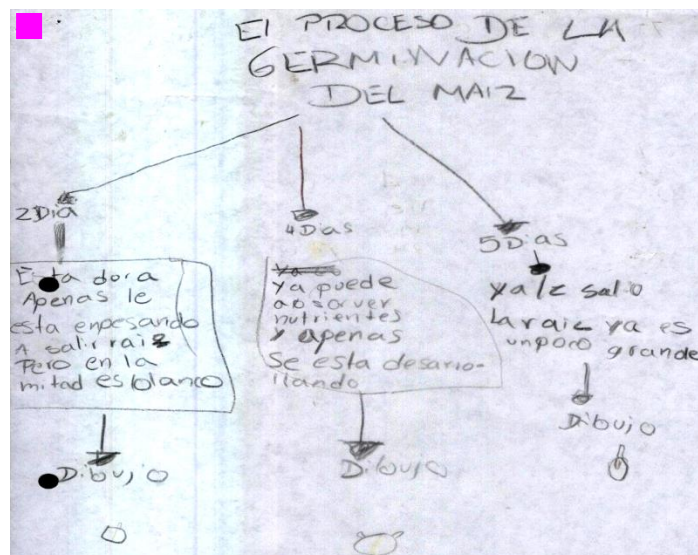 El PROCESO DE LA
GERMINACION
DEL MAIZ
2 Dia
Esta dora
Apenas le
esta enpesando
A salir raiz
Pero en la
mitad es blanco
Dibujo
4 Dias
ya puede
absorver
nutrientes
y apenas
Se esta desarro-
llando
Dibujo
5 Dias
ya le salio
La raiz ya es
un poco grande
Dibujo